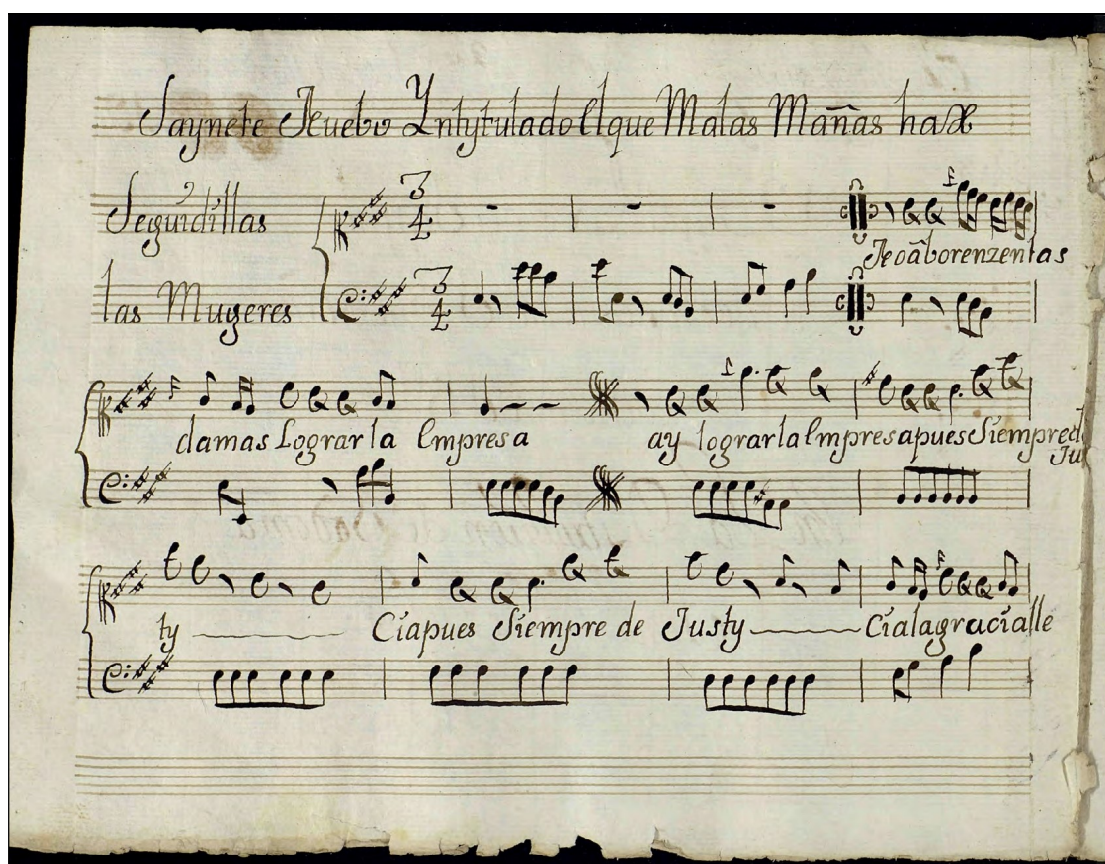 Saynete Nuebo Yntytulado El que Malas Mañas ha
Seguidillas
3
4
las Mugeres
3
4
damas Lograr la Empresa ay lograr la Empresa pues Siempre de
Jus
ty Cia pues Siempre de Justy Cia la gracia lle